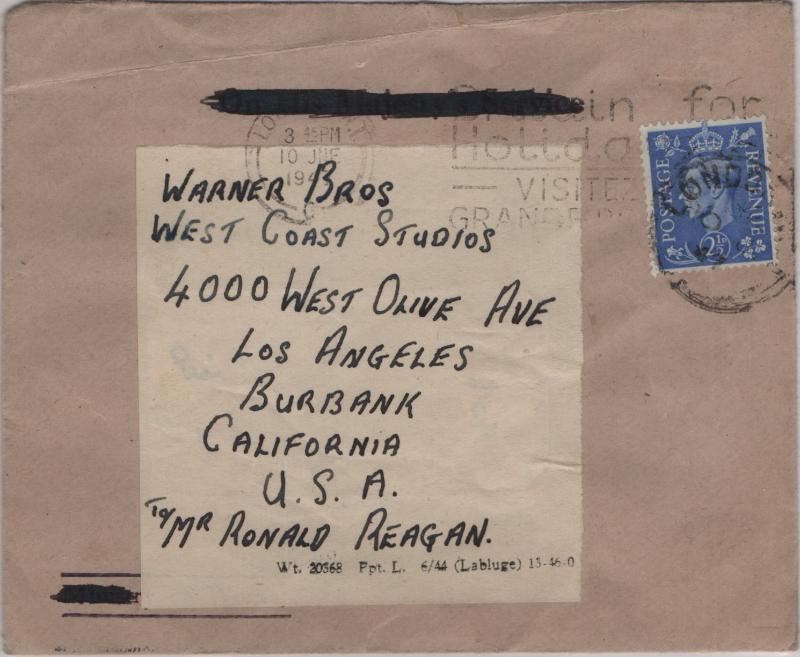 On His Majesty's Service
Britain for
Holida
VISITEZ
GRANDE
3 45PM
10 JNE
194
POSTAGE REVENUE
2½D
LOND
WARNER BROS
WEST COAST STUDIOS
4000 WEST OLIVE AVE
LOS ANGELES
BURBANK
CALIFORNIA
U. S. A.
To/ MR RONALD REAGAN.
Wt. 20368 Ppt. L. 6/44 (Labluge) 13-46-0